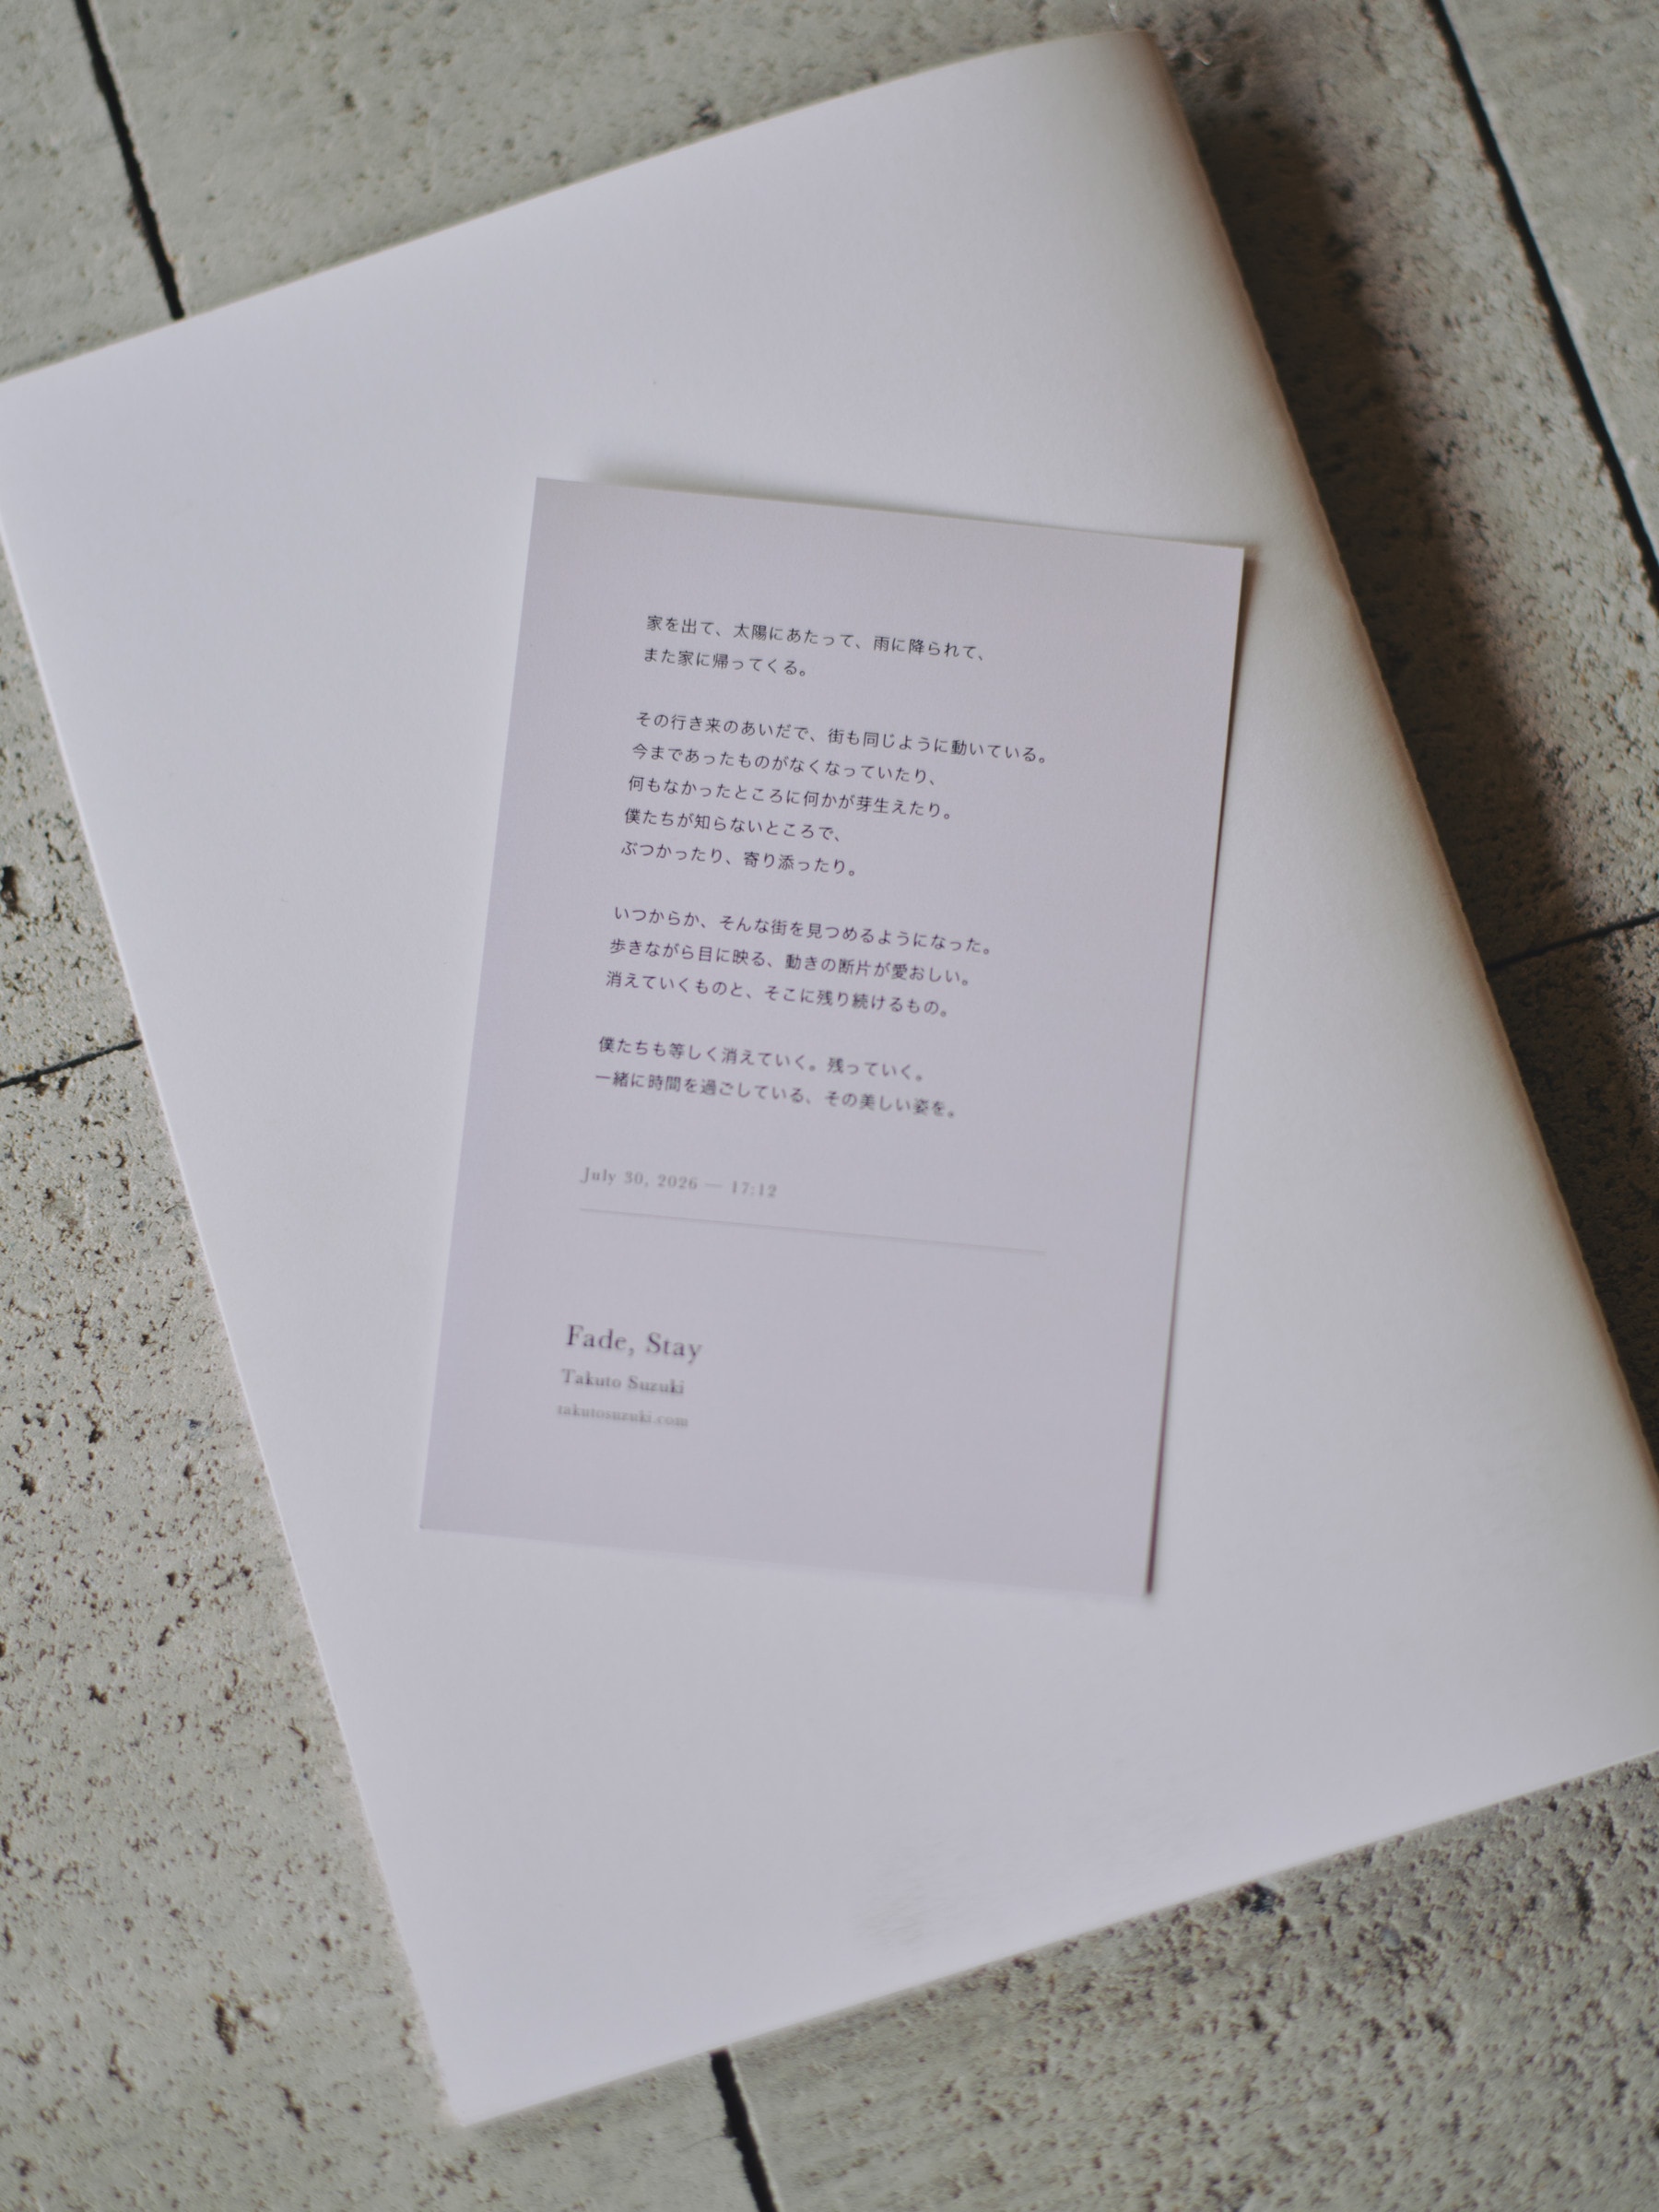 家を出て、太陽にあたって、雨に降られて、
また家に帰ってくる。
その行き来のあいだで、街も同じように動いている。
今まであったものがなくなっていたり、
何もなかったところに何かが芽生えたり。
僕たちが知らないところで、
ぶつかったり、寄り添ったり。
いつからか、そんな街を見つめるようになった。
歩きながら目に映る、動きの断片が愛おしい。
消えていくものと、そこに残り続けるもの。
僕たちも等しく消えていく。残っていく。
一緒に時間を過ごしている、その美しい姿を。
July 30, 2026 — 17:12
Fade, Stay
Takuto Suzuki
takutosuzuki.com